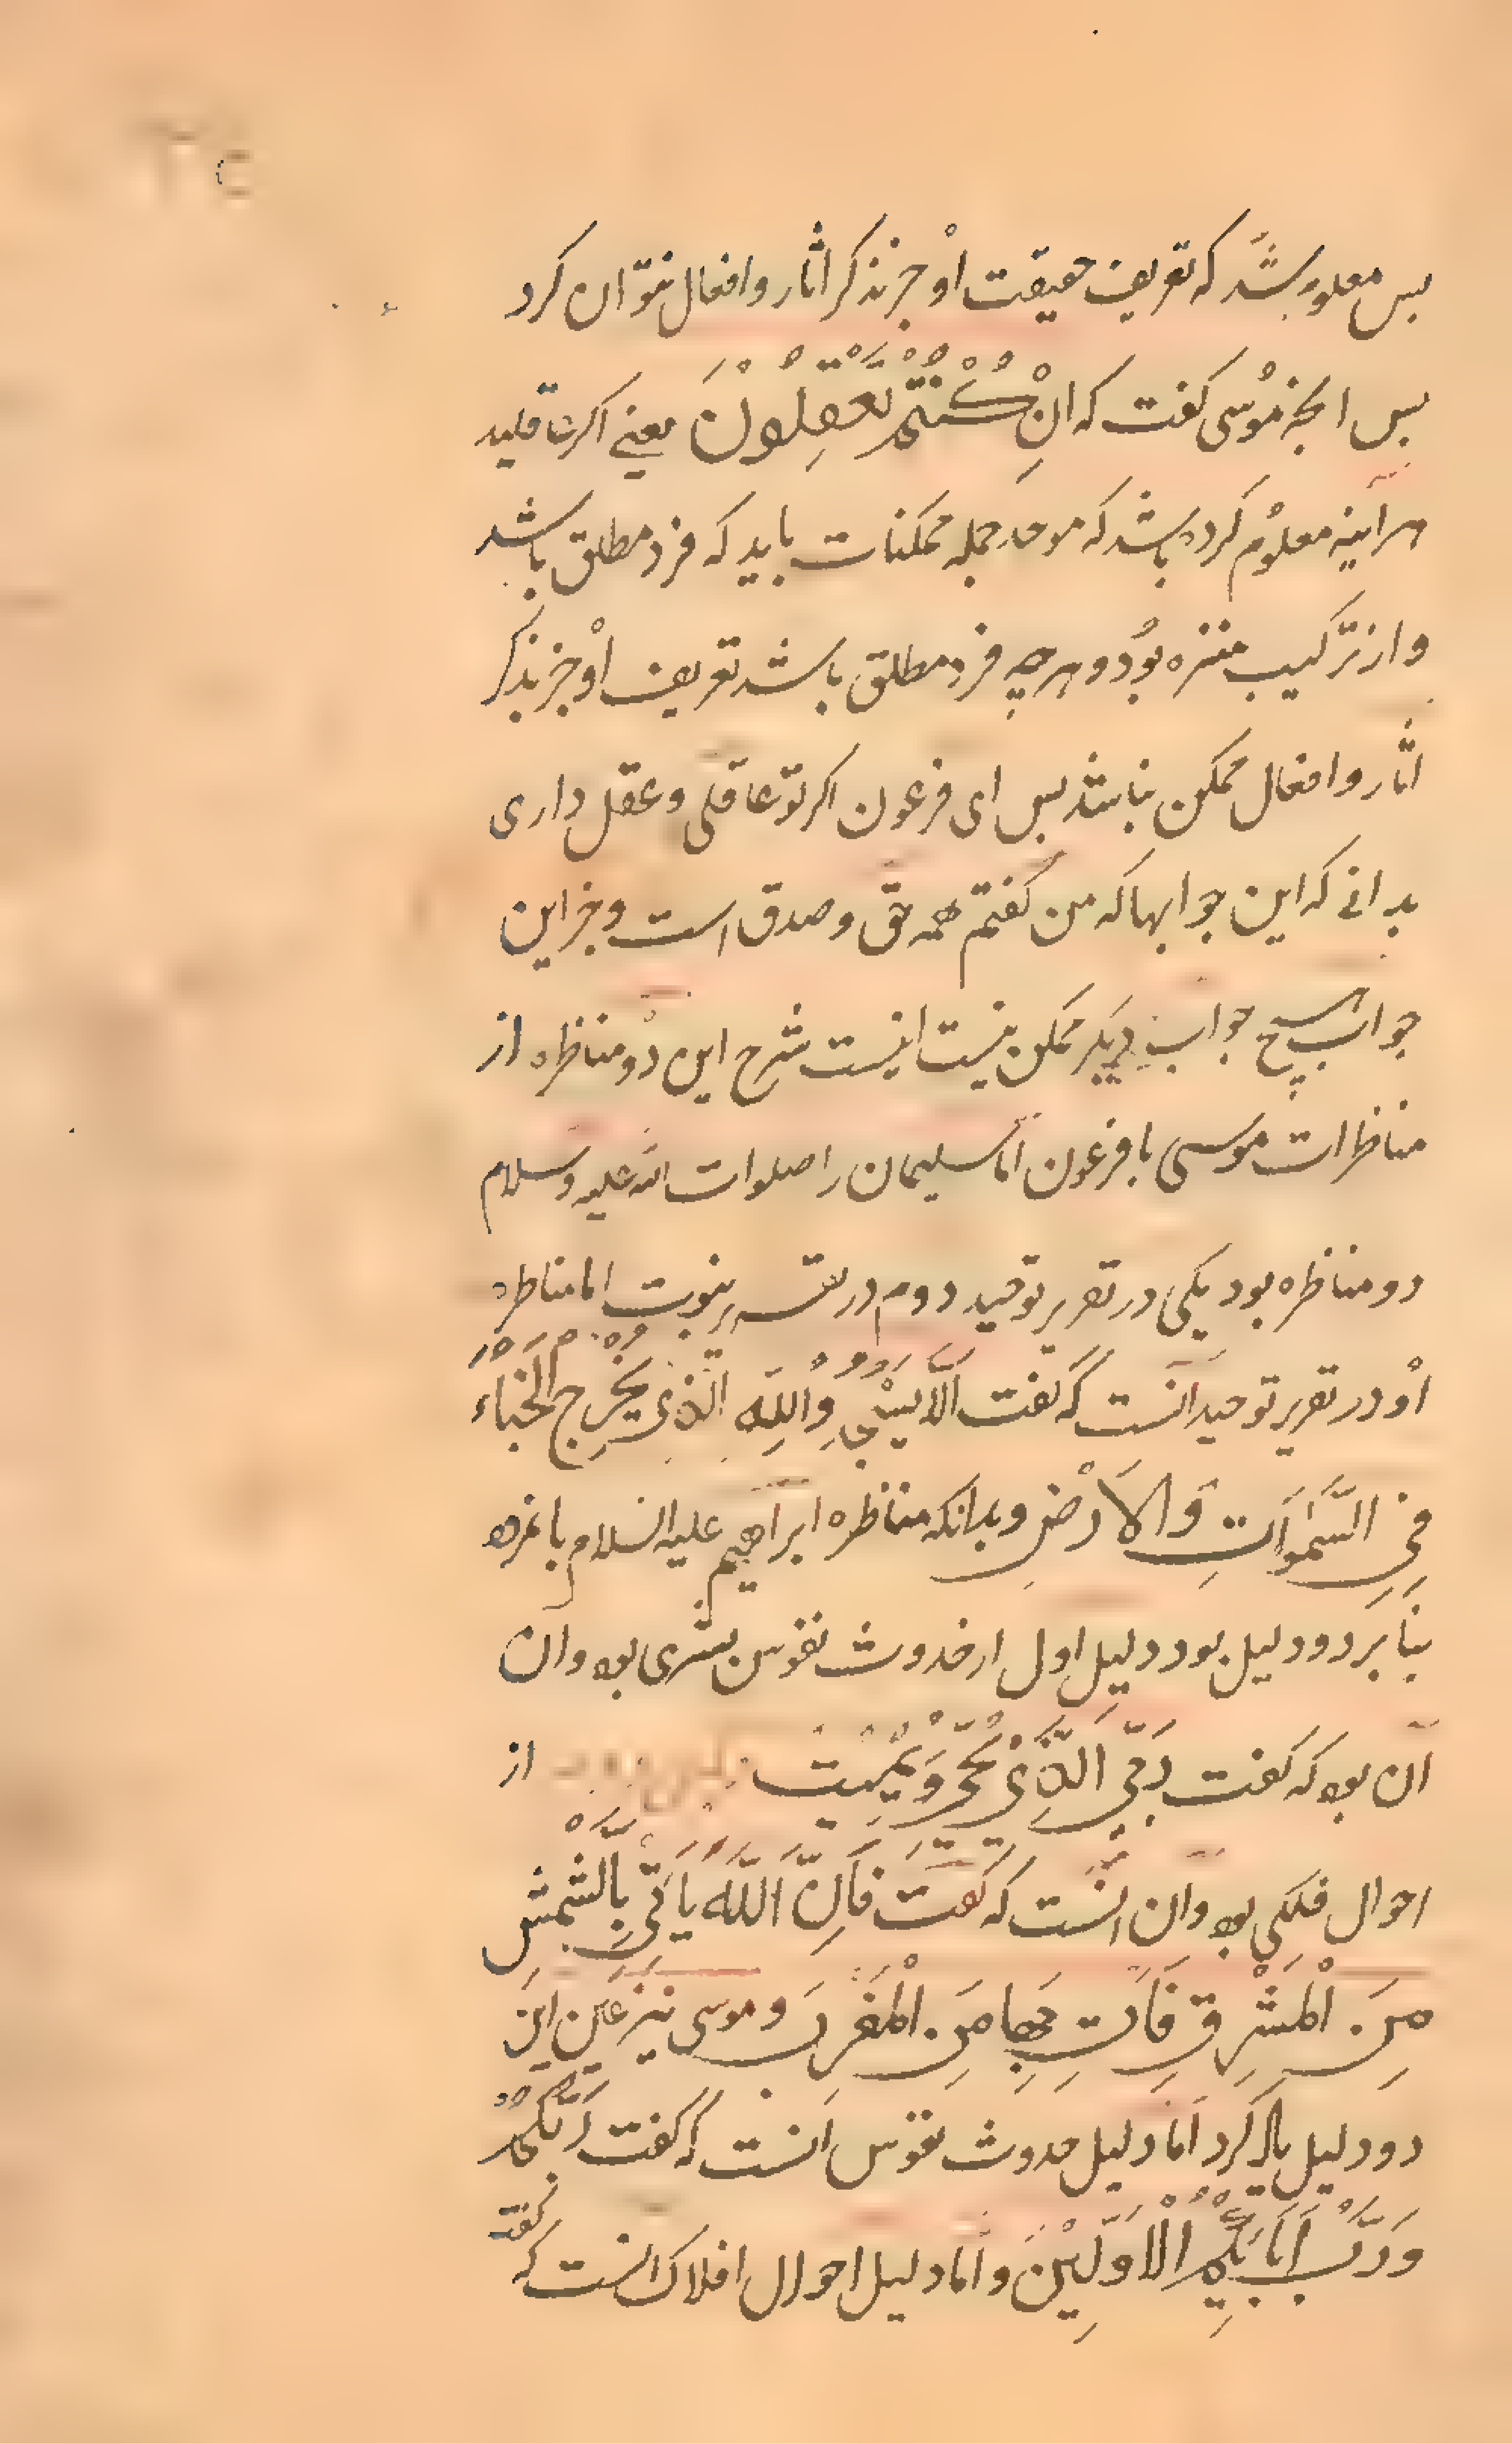 بس معلوم شد که تعریف حقیقت او جز بذکر اثار و افعال نتوان کرد
بس انجه موسی کفت که اِنْ کُنْتُمْ تَعْقِلُونَ یعنی اکر عاقلید
هر آینه معلوم کرده باشد که موجد جمله ممکنات باید که فرد مطلق باشد
و از ترکیب منزه بود و هرچه فرد مطلق باشد تعریف او جز بذکر
اثار و افعال ممکن نباشد بس ای فرعون اکر تو عاقلی و عقل داری
بدانی که این جوابها که من کفتم همه حق و صدق است و جز این
جواب هیچ جواب دیکر ممکن نیست اینست شرح این دو مناظره از
مناظرات موسی با فرعون اما سلیمان را صلوات الله علیه و سلام
دو مناظره بود یکی در تقریر توحید دوم در تقریر نبوت اما مناظره
او در تقریر توحید آنست که کفت اَلَّا یَسْجُدُوا لِلّٰهِ الَّذِی یُخْرِجُ الْخَبْاءَ
فِی السَّمٰوَاتِ وَالْاَرْضِ و بدانکه مناظره ابراهیم علیه السلام با نمرود
بنا بر دو دلیل بود دلیل اول از حدوث نفوس بشری بود و ان
آن بود که کفت رَبِّیَ الَّذِی یُحْیِی وَیُمِیتُ از
احوال فلکی بود و آن انست که کفت فَاِنَّ اللّٰهَ یَاْتِی بِالشَّمْسِ
مِنَ الْمَشْرِقِ فَاْتِ بِهَا مِنَ الْمَغْرِبِ و موسی نیز عین این
دو دلیل یاد کرد اما دلیل حدوث نفوس انست که کفت رَبُّکُمْ
وَرَبُّ اٰبَائِکُمُ الْاَوَّلِیْنَ و اما دلیل احوال افلاک انست که کفت